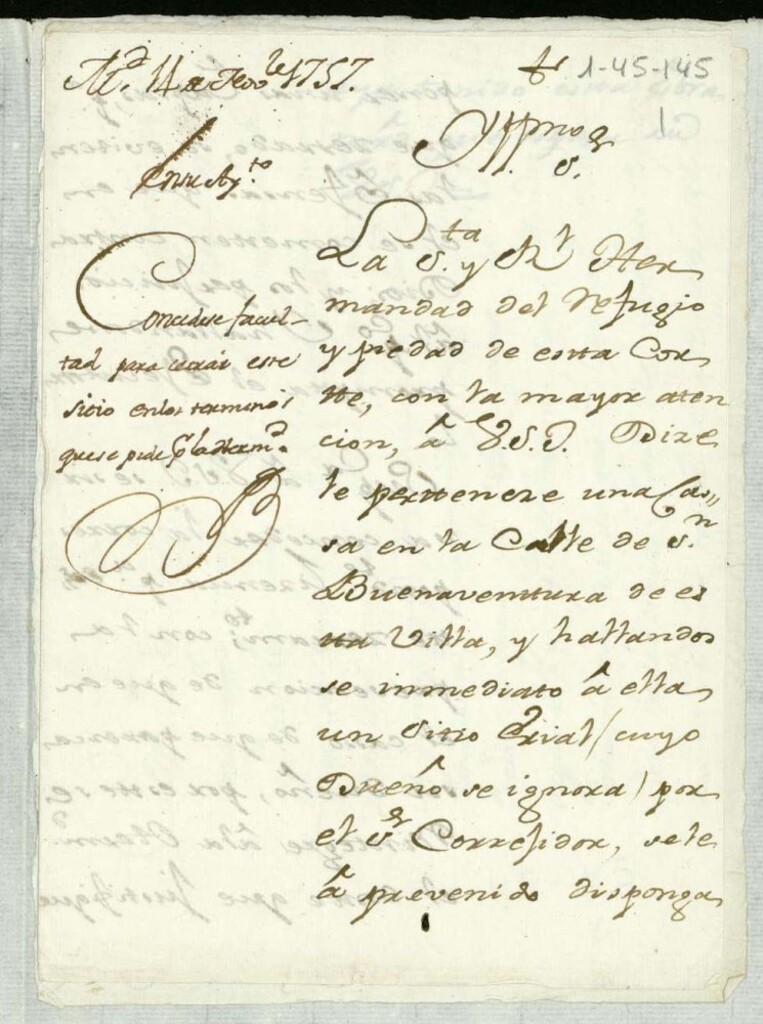 M.d 14 de Feb.o de 1757.
1-45-145
1
Yllmo S.r
En su Ay.to
Concedese facul-
tad para cerrar este
sitio en los terminos
que se pide p.r la Herm.d
La S.ta y R.l Her
mandad del Refugio
y piedad de esta Cor
te, con la mayor aten
cion, â V.S.I. Dize
le pertenece una Ca,,
sa en la Calle de S.n
Buenaventura de es
ta Villa, y hallando
se inmediato â ella
un Sitio Erial (cuyo
Dueño se ignora) por
el S.r Corregidor, se le
â prevenido disponga